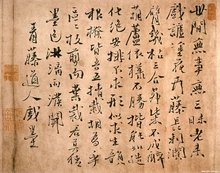 世間無事無三昧老来
戲謔塗花卉藤長刺闊
臂幾枯三合茅柴不成醉
葫蘆依樣不勝揩能如造
化絶安排不求形似求生韻
根撥皆吾五指栽胡為乎
區區枝剪而葉裁君莫猜
墨色淋漓兩撥開
青藤道人戲墨